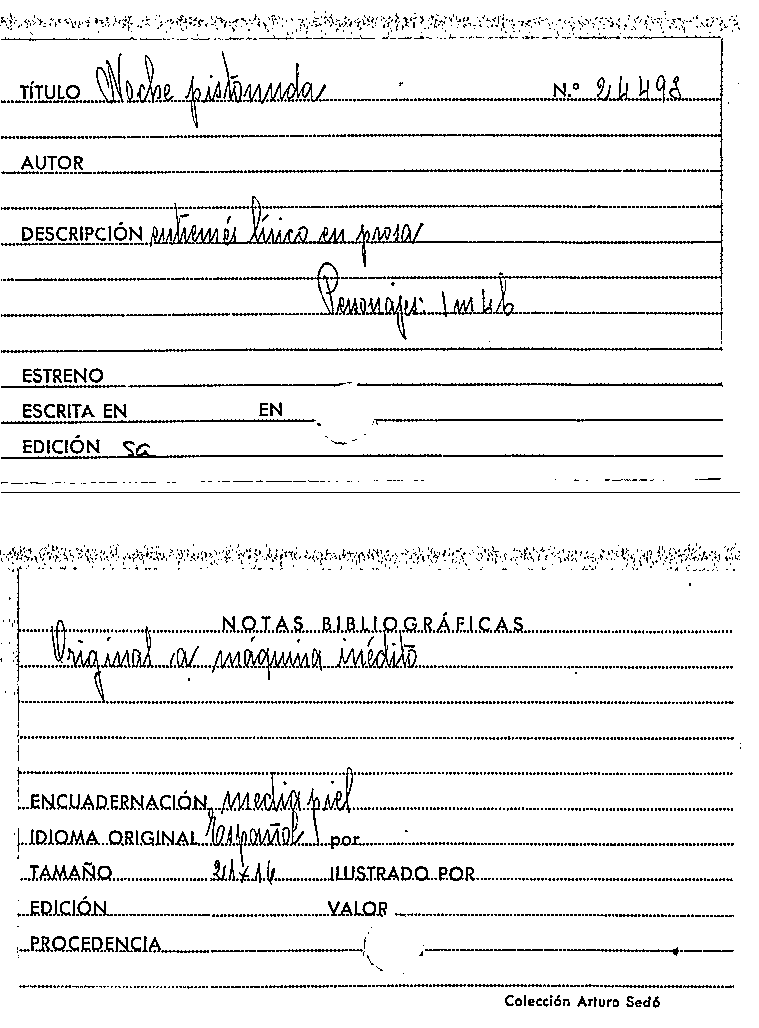 TÍTULO Noche pistonuda N.º 24498
AUTOR
DESCRIPCIÓN entremés lírico en prosa
Personajes: 1m 4h
ESTRENO
ESCRITA EN EN
EDICIÓN sa
NOTAS BIBLIOGRÁFICAS
Original a máquina inédito
ENCUADERNACIÓN media piel
IDIOMA ORIGINAL Español por
TAMAÑO 21x16 ILUSTRADO POR
EDICIÓN VALOR
PROCEDENCIA
Colección Arturo Sedó